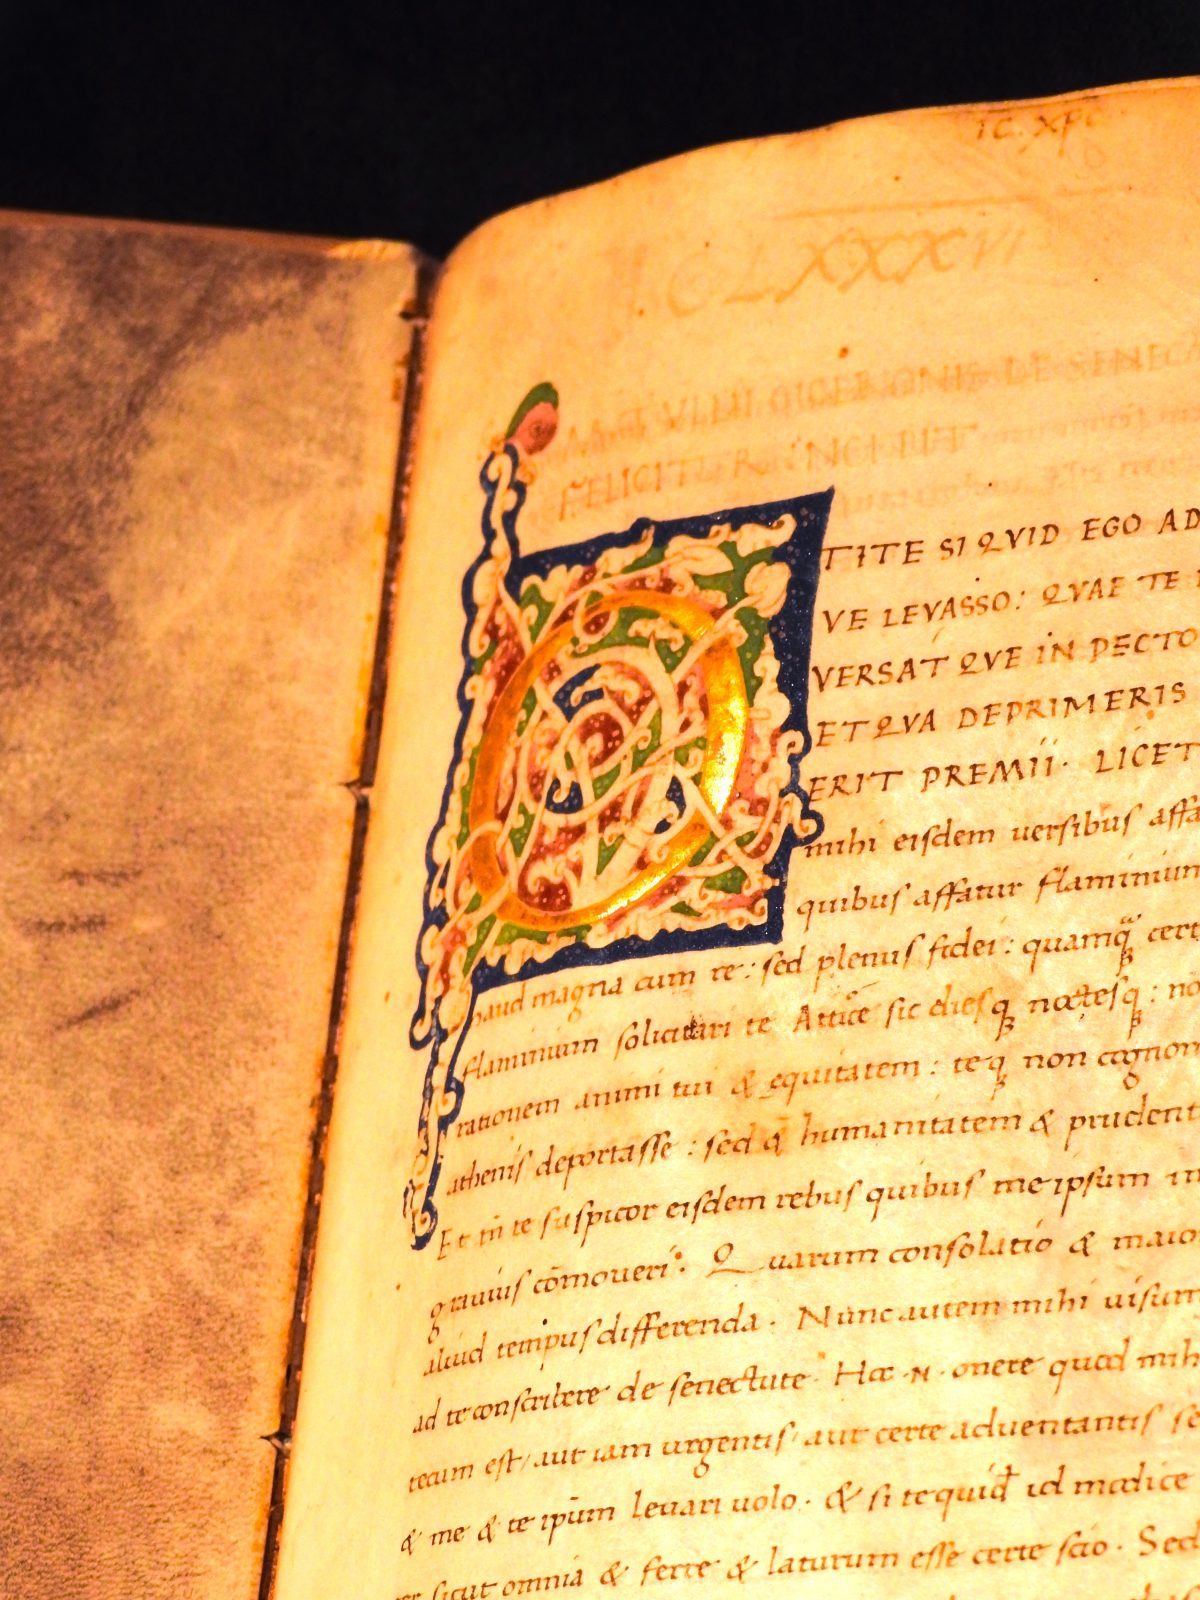 CLXXXVI
TITE SI QVID EGO AD
VE LEVASSO: QVAE TE
VERSAT QVE IN PECTO
ET QVA DEPRIMERIS
ERIT PREMII. LICET
mihi eisdem versibus affa
quibus affatur flaminium
haud magna cum re: sed plenus fidei: quamq̃ cert
flaminium solicitari te Attice sic diesq noctesq: no
rationem animi tui & equitatem: teq non cognom
athenis deportasse: sed & humanitatem & prudent
Et in te suspicor eisdem rebus quibus me ipsum in
gravius cōmoveri. Quarum consolatio & maio
aliud tempus differenda. Nunc autem mihi visum
ad te conscribere de senectute. Hoc .N. onere quod mih
tecum est/aut iam urgentis/aut certe adventantis se
& me & te ipsum levari volo. & si te quidem id modice
sicut omnia & ferre & laturum esse certe scio. Sed